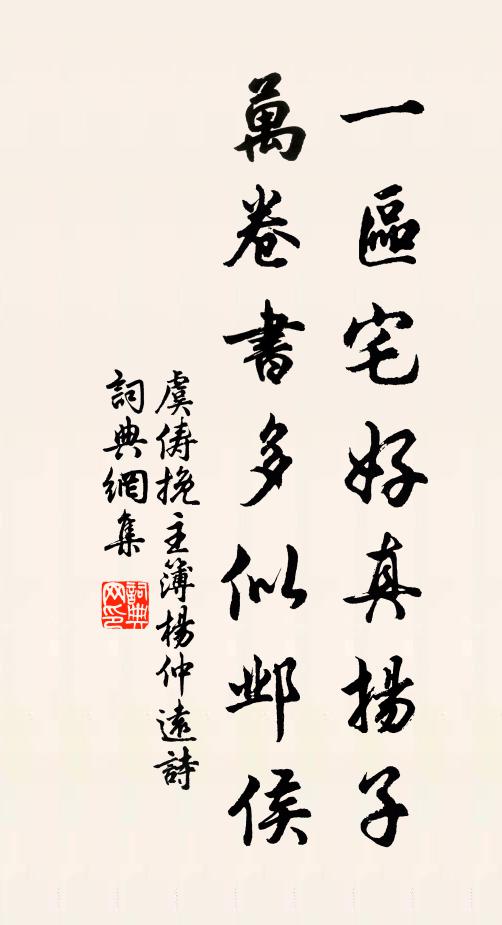 一區宅好真揚子
萬卷書多似邺侯
虞儔挽主簿楊仲遠詩
詞典網集
詞典
网印